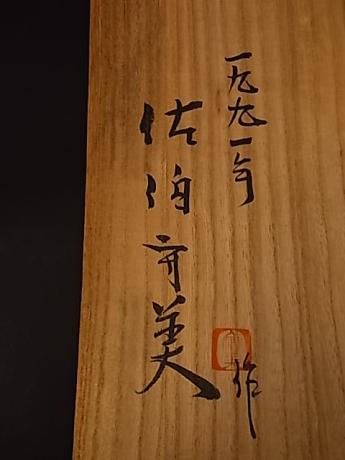 一九九一年
佐伯守美
作